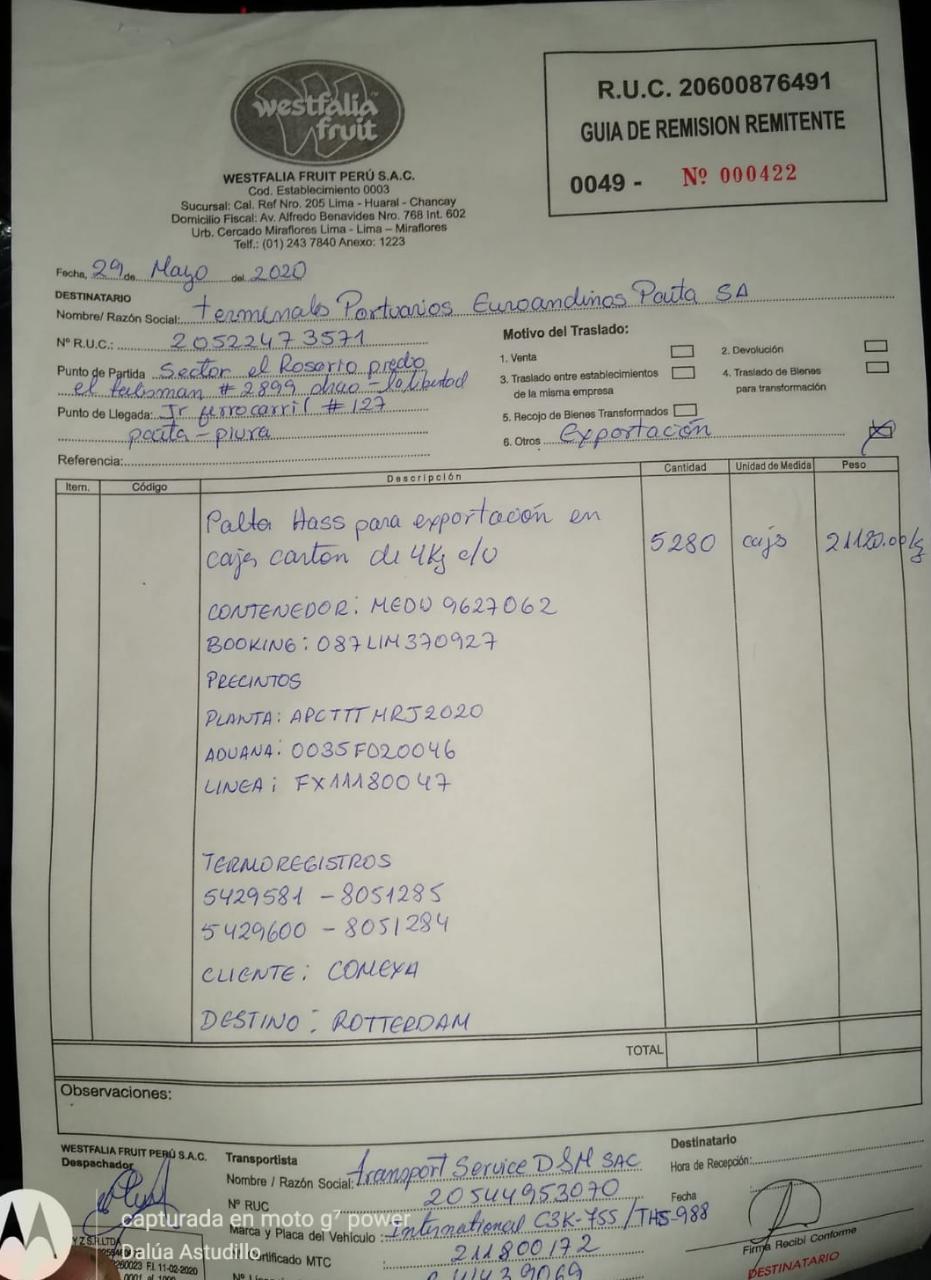 westfalia
fruit
WESTFALIA FRUIT PERÚ S.A.C.
Cod. Establecimiento 0003
Sucursal: Cal. Ref Nro. 205 Lima - Huaral - Chancay
Domicilio Fiscal: Av. Alfredo Benavides Nro. 768 Int. 602
Urb. Cercado Miraflores Lima - Lima – Miraflores
Telf.: (01) 243 7840 Anexo: 1223
R.U.C. 20600876491
GUIA DE REMISION REMITENTE
0049 - Nº 000422
Fecha, 29 de Mayo del 2020
DESTINATARIO
Nombre/ Razón Social: terminals Portuarios Euroandinos Paita SA
Nº R.U.C.: 20522473571
Punto de Partida Sector el Rosario predo
el talisman # 2899 chao - la libertad
Punto de Llegada: Jr ferrocarril # 127
paita - piura
Referencia:
Motivo del Traslado:
1. Venta
2. Devolución
3. Traslado entre establecimientos
de la misma empresa
4. Traslado de Bienes
para transformación
5. Recojo de Bienes Transformados
6. Otros Exportación
Item. Código Descripción Cantidad Unidad de Medida Peso
Palta Hass para exportación en
cajas carton de 4Kg c/u 5280 cajs 21120.00kg
CONTENEDOR: MEDU 9627062
BOOKING: 087LIM370927
PRECINTOS
PLANTA: APCTTTMRJ2020
ADUANA: 0035F020046
LINEA: FX11180047
TERMOREGISTROS
5429581 - 8051285
5429600 - 8051284
CLIENTE: COMEXA
DESTINO: ROTTERDAM
TOTAL
Observaciones:
WESTFALIA FRUIT PERÚ S.A.C.
Despachador
Transportista
Nombre / Razón Social: transport Service DSM SAC
Nº RUC 20544953070
Marca y Placa del Vehículo: International C3K-755 / TH5-988
Certificado MTC 211800172
Destinatario
Hora de Recepción:
Fecha
Firma Recibi Conforme
DESTINATARIO
capturada en moto g⁷ power
Dalúa Astudillo